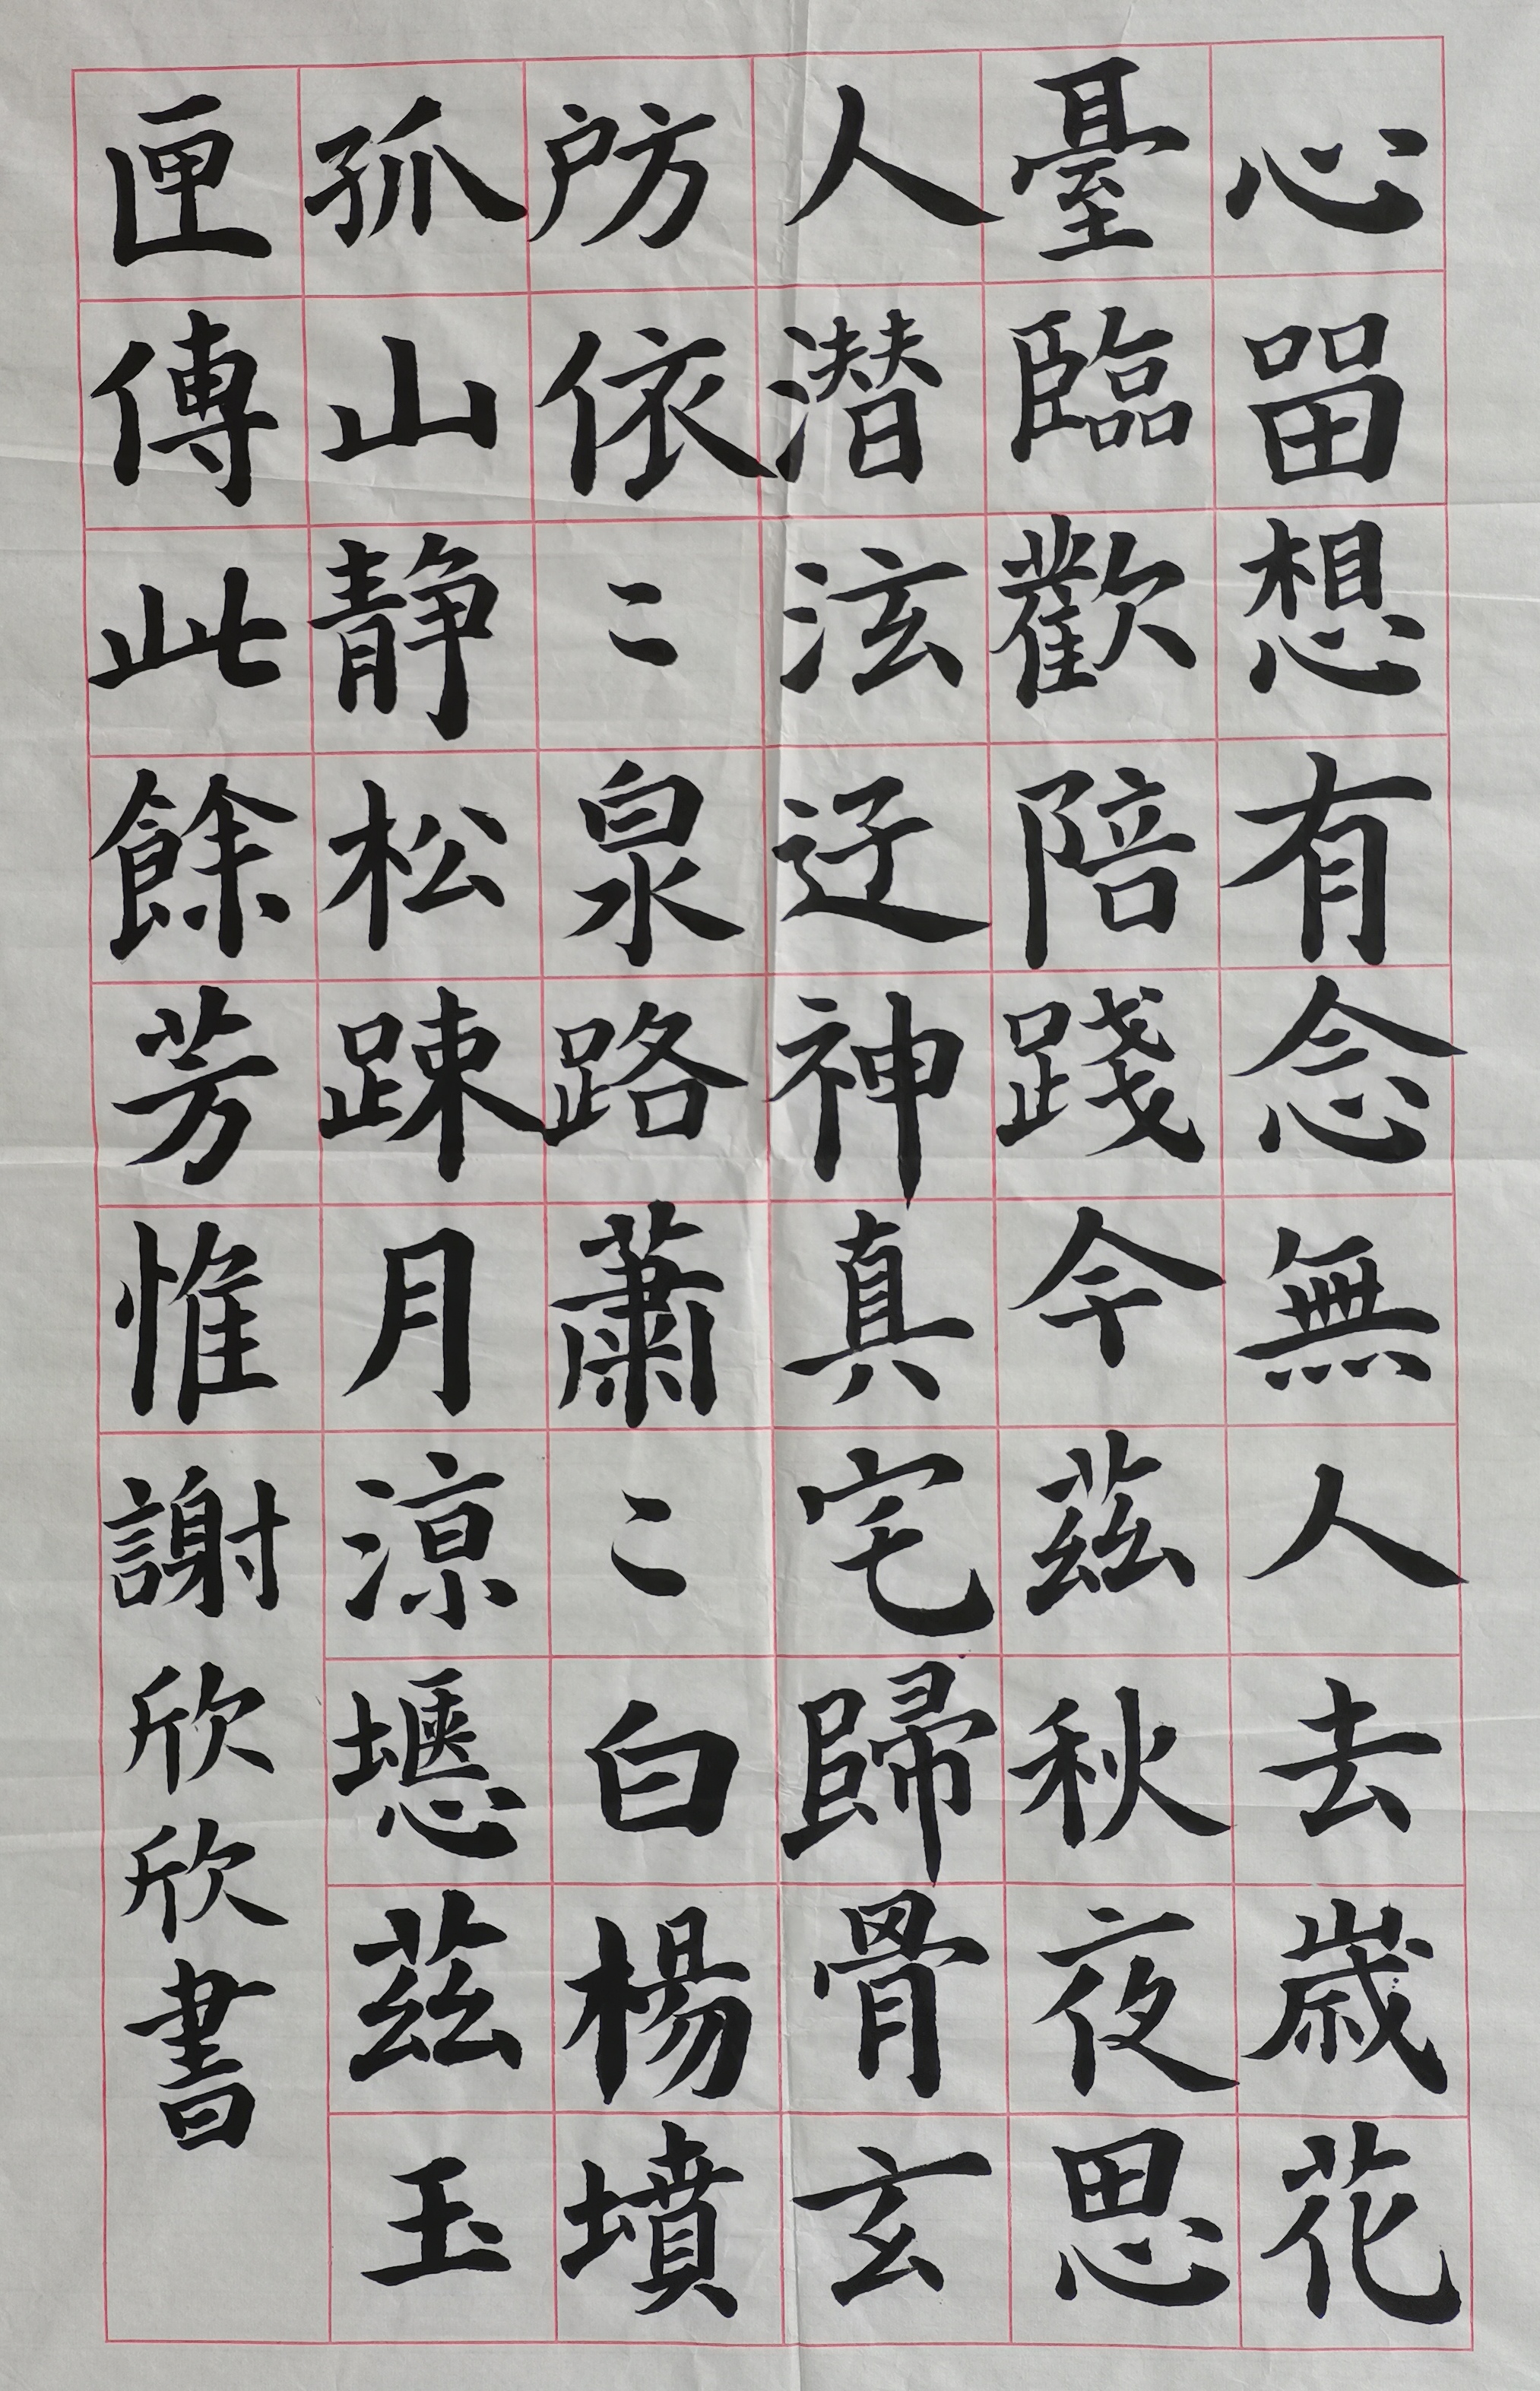 心留想有念無人去歳花
臺臨歡陪踐今茲秋夜思
人潜泫迁神真宅歸骨玄
房依〻泉路蕭〻白楊墳
孤山静松踈月涼瘞茲玉
匣傳此餘芳惟謝欣欣書